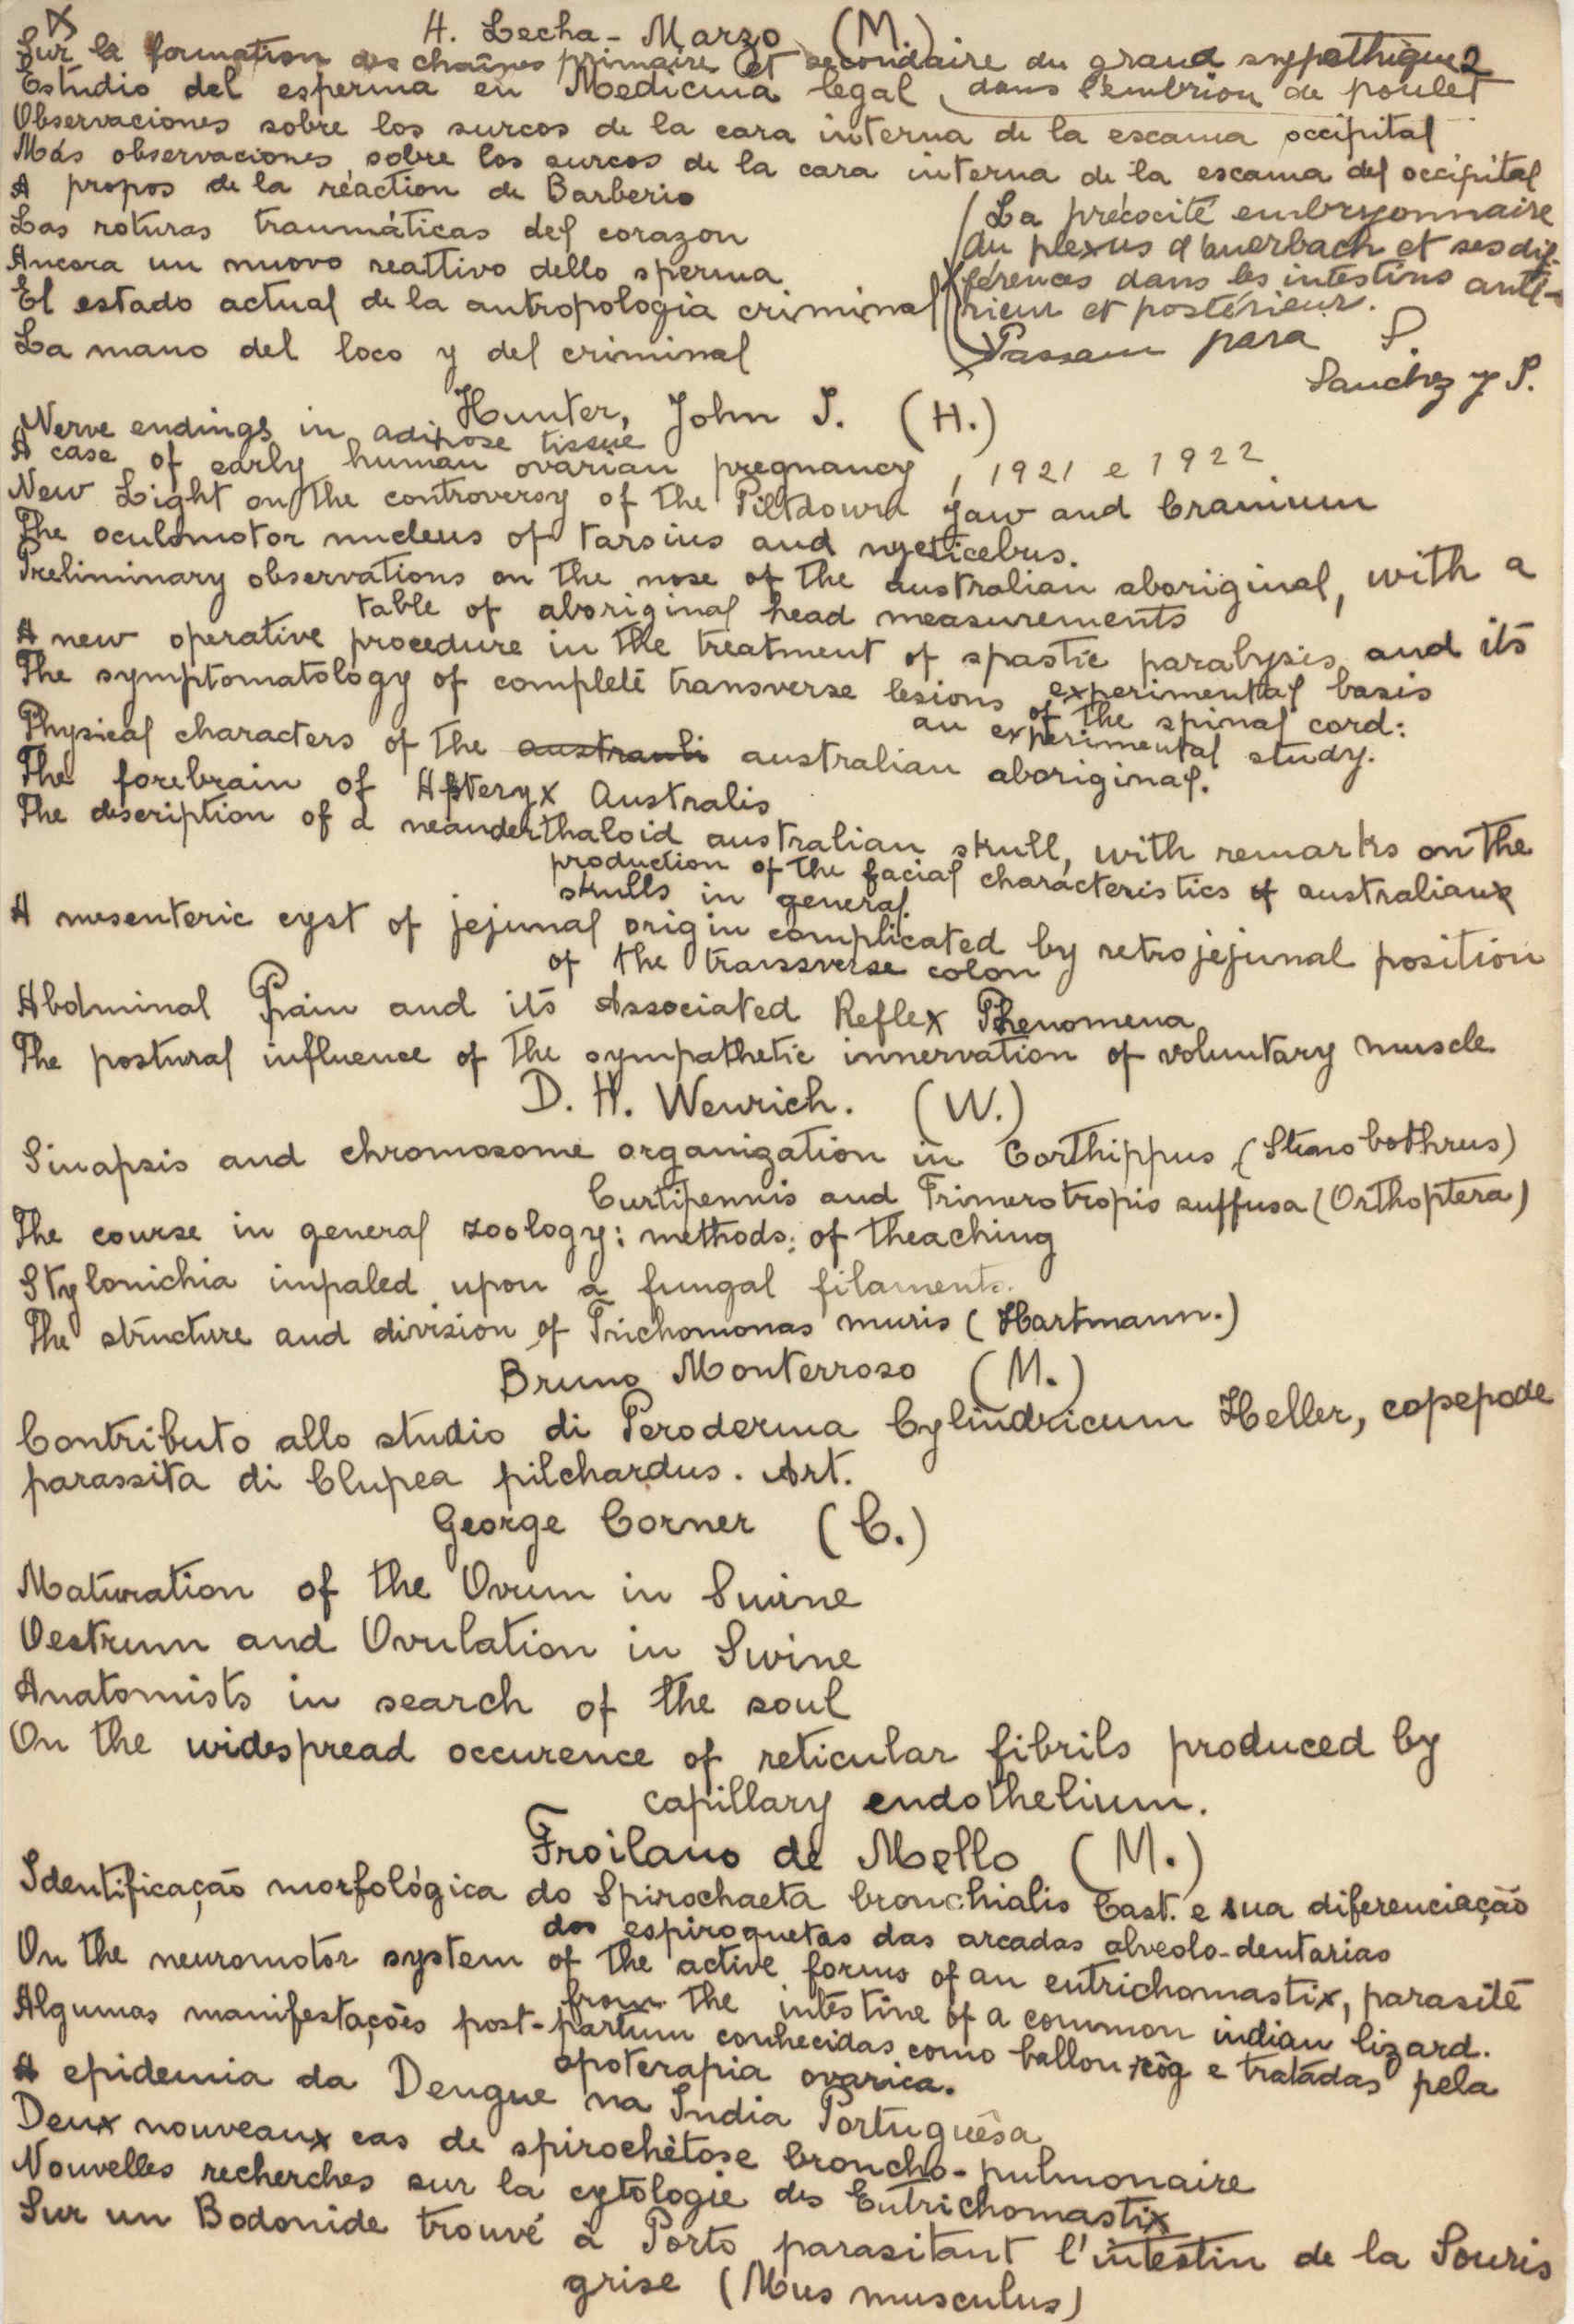 H. Lecha-Marzo (M.)
Sur la formation des chaînes primaire et secondaire du grand sypathique
Estudio del esperma en Medicina legal dans l'embrion de poulet
Observaciones sobre los surcos de la cara interna de la escama occipital
Más observaciones sobre los surcos de la cara interna de la escama del occipital
A propos de la réaction de Barberio
Las roturas traumáticas del corazon
Ancora un nuovo reattivo dello sperma
El estado actual de la antropologia criminal
La mano del loco y del criminal
La précocité embryonnaire
du plexus d'Auerbach et ses dif-
férences dans les intestins anté-
rieur et postérieur.
Passam para P.
Sanchez y P.
Hunter, John I. (H.)
Nerve endings in adipose tissue
A case of early human ovarian pregnancy, 1921 e 1922
New Light on the controversy of the Piltdown Jaw and Cranium
The oculomotor nucleus of tarsius and nycticebus.
Preliminary observations on the nose of the australian aboriginal, with a
table of aboriginal head measurements
A new operative procedure in the treatment of spastic paralysis and its
experimental basis
The symptomatology of complete transverse lesions of the spinal cord:
an experimental study.
Physical characters of the australi australian aboriginal.
The forebrain of Apteryx Australis
The description of a neanderthaloid australian skull, with remarks on the
production of the facial characteristics of australian
skulls in general.
A mesenteric cyst of jejunal origin complicated by retrojejunal position
of the transverse colon
Abdminal Pain and its Associated Reflex Phenomena
The postural influence of the sympathetic innervation of voluntary muscle
D. H. Wenrich. (W.)
Sinapsis and chromosome organization in Corthippus (Stenobothrus)
Curtipennis and Trimerotropis suffusa (Orthoptera)
The course in general zoology: methods: of theaching
Stylonichia impaled upon a fungal filament.
The structure and division of Trichomonas muris (Hartmann.)
Bruno Monterroso (M.)
Contributo allo studio di Peroderma Cylindricum Heller, copepode
parassita di Clupea pilchardus. Art.
George Corner (C.)
Maturation of the Ovum in Swine
Oestrum and Ovulation in Swine
Anatomists in search of the soul
On the widespread occurence of reticular fibrils produced by
capillary endothelium.
Froilano de Mello (M.)
Identificação morfológica do Spirochaeta bronchialis Cast. e sua diferenciação
dos espiroquetas das arcadas alveolo-dentarias
On the neuromotor system of the active forms of an eutrichomastix, parasite
from the intestine of a common indian lizard.
Algumas manifestações post-partum conhecidas como ballon rôg e tratadas pela
opoterapia ovarica.
A epidemia da Dengue na India Portuguêsa
Deux nouveaux cas de spirochètose broncho-pulmonaire
Nouvelles recherches sur la cytologie des Eutrichomastix
Sur un Bodonide trouvé à Porto parasitant l'intestin de la Souris
grise (Mus musculus)